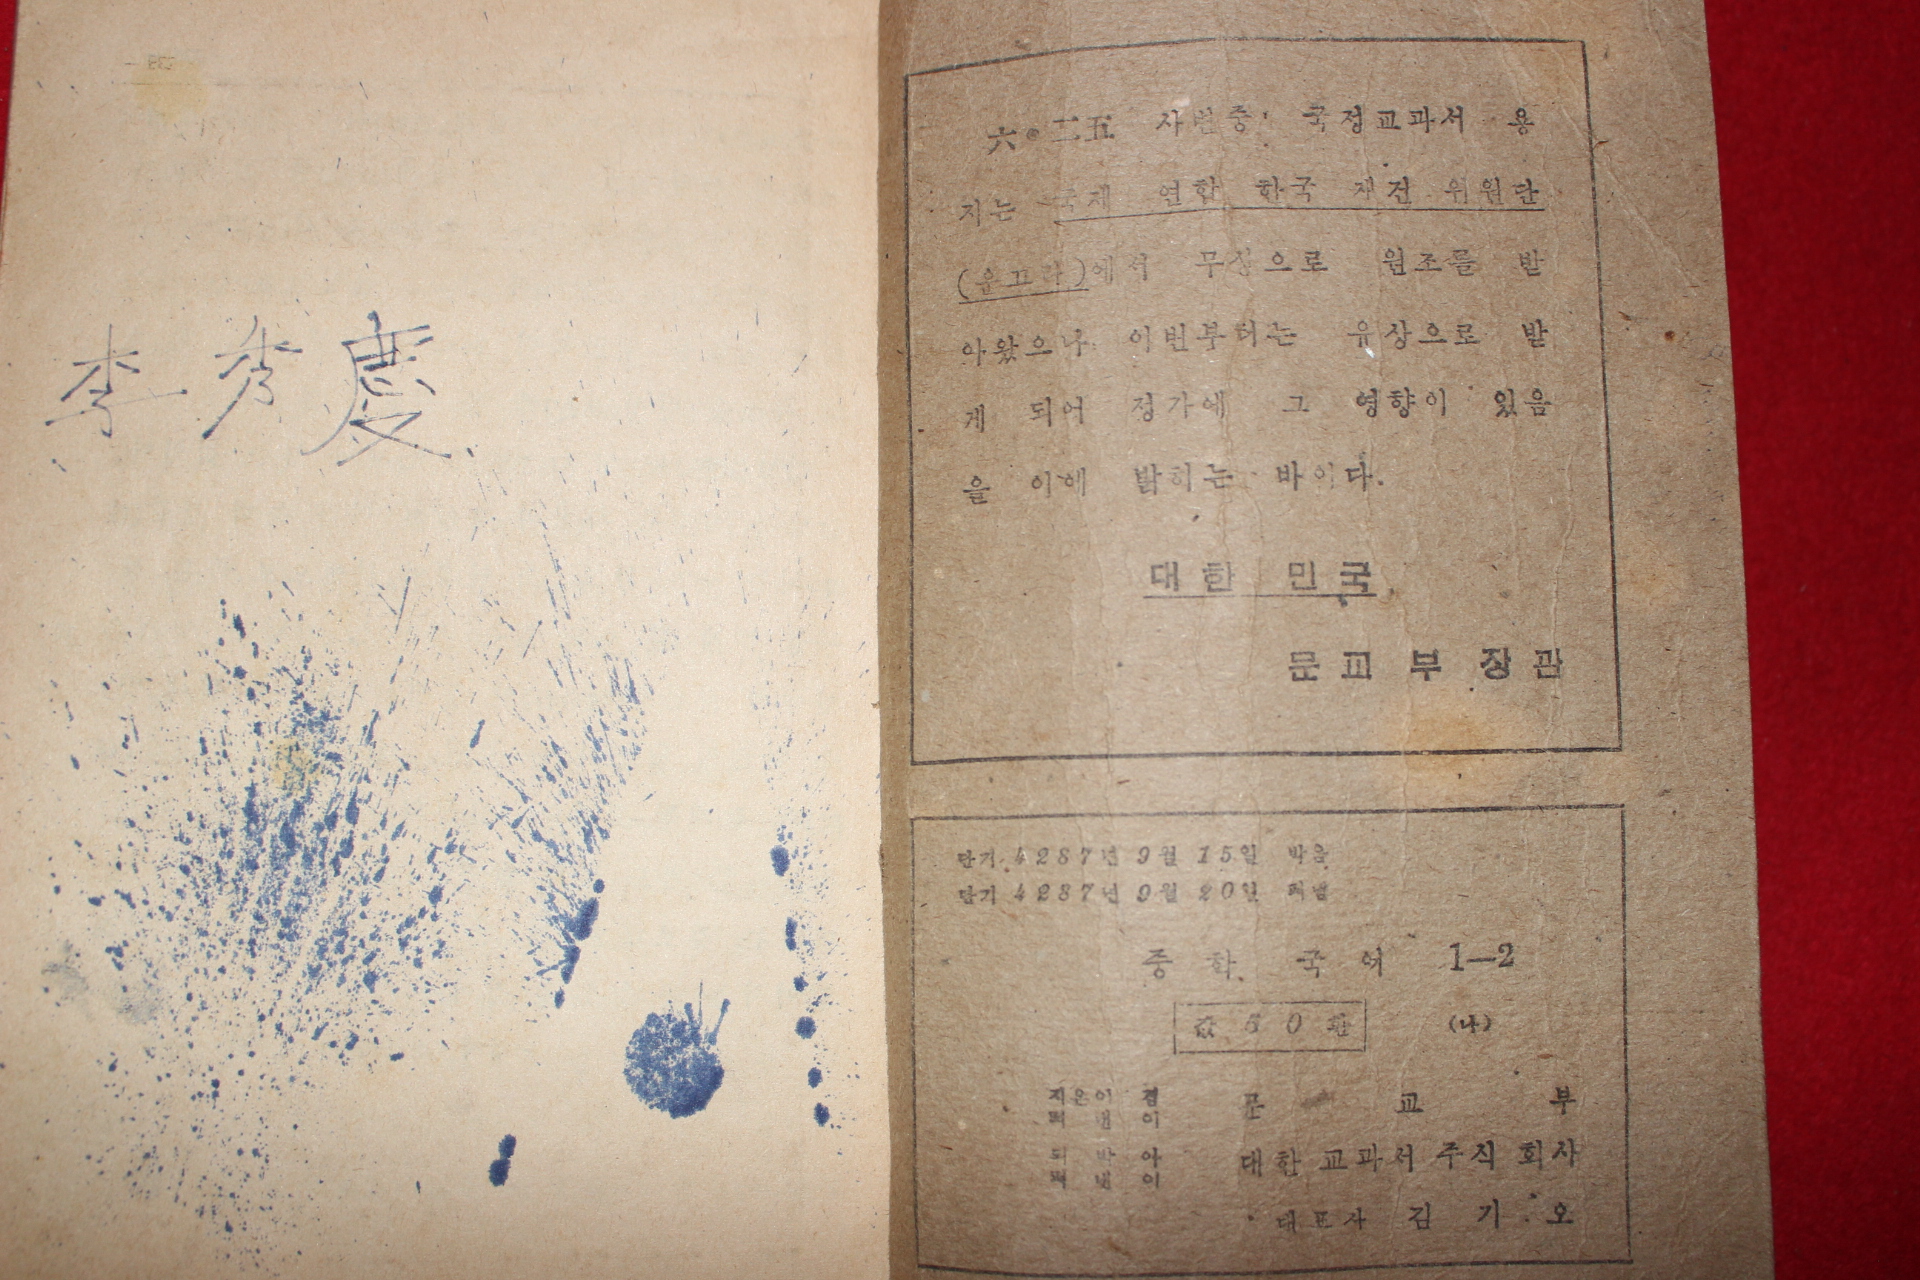 李秀慶
六•二五 사변중 국정교과서 용
지는 국제 연합 한국 재건 위원단
(운끄라)에서 무상으로 원조를 받
아왔으나 이번부터는 유상으로 받
게 되어 정가에 그 영향이 있음
을 이에 밝히는 바이다.
대한 민국
문교부장관
단기 4287년 9월 15일 박음
단기 4287년 9월 20일 펴냄
중학 국어 1—2
값 60환 (나)
지은이 겸 펴낸이 문교부
되박아 펴낸이 대한교과서주식회사
대표자 김기오